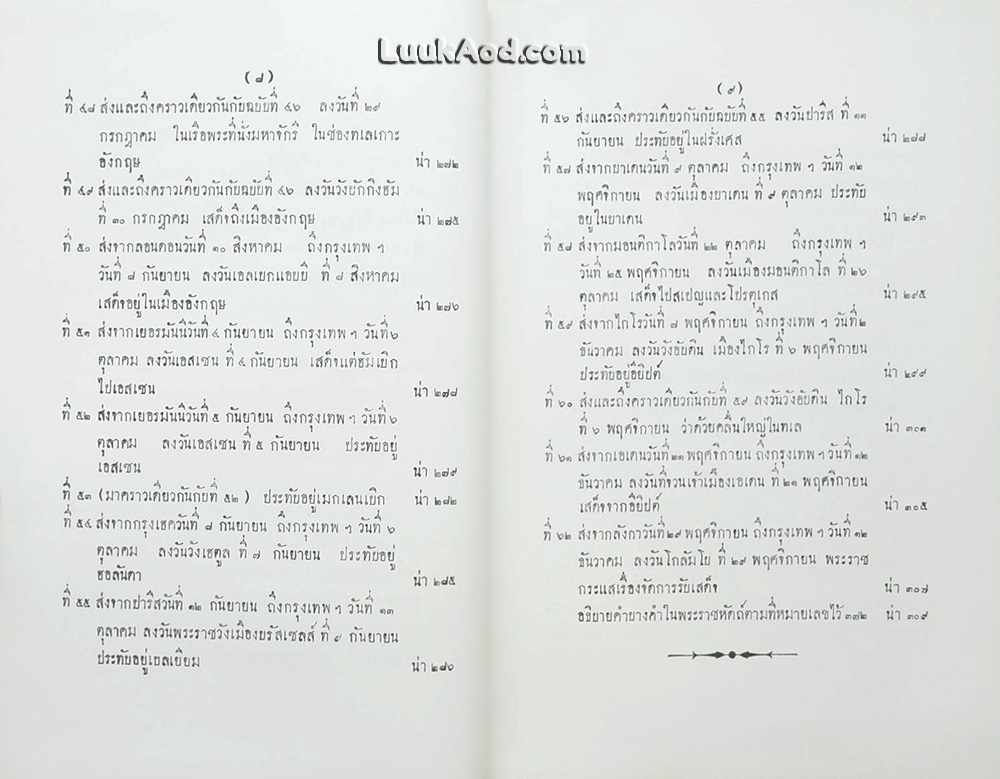 LuukAod.com
(๘)
ที่ ๔๘ ส่งและถึงคราวเดียวกันกับฉบับที่ ๔๖ ลงวันที่ ๒๙
กรกฎาคม ในเรือพระที่นั่งมหาจักรี ในช่องทเลเกาะ
อังกฤษ น่า ๒๗๒
ที่ ๔๙ ส่งและถึงคราวเดียวกันกับฉบับที่ ๔๖ ลงวันวังบักกิงฮัม
ที่ ๓๐ กรกฎาคม เสด็จถึงเมืองอังกฤษ น่า ๒๗๕
ที่ ๕๐ ส่งจากลอนดอนวันที่ ๑๐ สิงหาคม ถึงกรุงเทพ ฯ
วันที่ ๘ กันยายน ลงวันเอลเยกแอบยี ที่ ๘ สิงหาคม
เสด็จอยู่ในเมืองอังกฤษ น่า ๒๗๖
ที่ ๕๑ ส่งจากเยอรมันนีวันที่ ๔ กันยายน ถึงกรุงเทพ ฯ วันที่ ๖
ตุลาคม ลงวันเอสเซน ที่ ๔ กันยายน เสด็จแต่ฮัมเบิก
ไปเอสเซน น่า ๒๗๘
ที่ ๕๒ ส่งจากเยอรมันนีวันที่ ๕ กันยายน ถึงกรุงเทพ ฯ วันที่ ๖
ตุลาคม ลงวันเอสเซน ที่ ๕ กันยายน ประทับอยู่
เอสเซน น่า ๒๗๙
ที่ ๕๓ (มาคราวเดียวกันกับที่ ๕๒) ประทับอยู่เมกเลนเบิก น่า ๒๘๒
ที่ ๕๔ ส่งจากกรุงเฮควันที่ ๘ กันยายน ถึงกรุงเทพ ฯ วันที่ ๖
ตุลาคม ลงวันวังเฮตูล ที่ ๗ กันยายน ประทับอยู่
ฮอลันดา น่า ๒๘๕
ที่ ๕๕ ส่งจากปารีสวันที่ ๑๒ กันยายน ถึงกรุงเทพ ฯ วันที่ ๑๓
ตุลาคม ลงวันพระราชวังเมืองบรัสเซลส์ ที่ ๙ กันยายน
ประทับอยู่เบลเยียม น่า ๒๘๖
(๙)
ที่ ๕๖ ส่งและถึงคราวเดียวกันกับฉบับที่ ๕๕ ลงวันปารีส ที่ ๑๑
กันยายน ประทับอยู่ในฝรั่งเศส น่า ๒๘๘
ที่ ๕๗ ส่งจากบาเดนวันที่ ๙ ตุลาคม ถึงกรุงเทพ ฯ วันที่ ๑๒
พฤศจิกายน ลงวันเมืองบาเดน ที่ ๙ ตุลาคม ประทับ
อยู่ในบาเดน น่า ๒๙๓
ที่ ๕๘ ส่งจากมอนติกาโลวันที่ ๒๒ ตุลาคม ถึงกรุงเทพ ฯ
วันที่ ๒๕ พฤศจิกายน ลงวันเมืองมอนติกาโล ที่ ๒๖
ตุลาคม เสด็จไปสเปญและโปรตุเกส น่า ๒๙๕
ที่ ๕๙ ส่งจากไกโรวันที่ ๗ พฤศจิกายน ถึงกรุงเทพ ฯ วันที่ ๒
ธันวาคม ลงวันวังอับดิน เมืองไกโร ที่ ๖ พฤศจิกายน
ประทับอยู่อียิปต์ น่า ๒๙๙
ที่ ๖๐ ส่งและถึงคราวเดียวกันกับที่ ๕๙ ลงวันวังอับดิน ไกโร
ที่ ๖ พฤศจิกายน ว่าด้วยคลื่นใหญ่ในทเล น่า ๓๐๑
ที่ ๖๑ ส่งจากเอเดนวันที่ ๒๑ พฤศจิกายน ถึงกรุงเทพ ฯ วันที่ ๑๒
ธันวาคม ลงวันที่จวนเจ้าเมืองเอเดน ที่ ๒๑ พฤศจิกายน
เสด็จจากอียิปต์ น่า ๓๐๕
ที่ ๖๒ ส่งจากลังกาวันที่ ๒๙ พฤศจิกายน ถึงกรุงเทพ ฯ วันที่ ๑๒
ธันวาคม ลงวันโกลัมโบ ที่ ๒๙ พฤศจิกายน พระราช
กระแสเรื่องจัดการรับเสด็จ น่า ๓๐๗
อธิบายคำบางคำในพระราชหัตถ์ตามที่หมายเลขไว้ ๓๗๒ น่า ๓๐๙